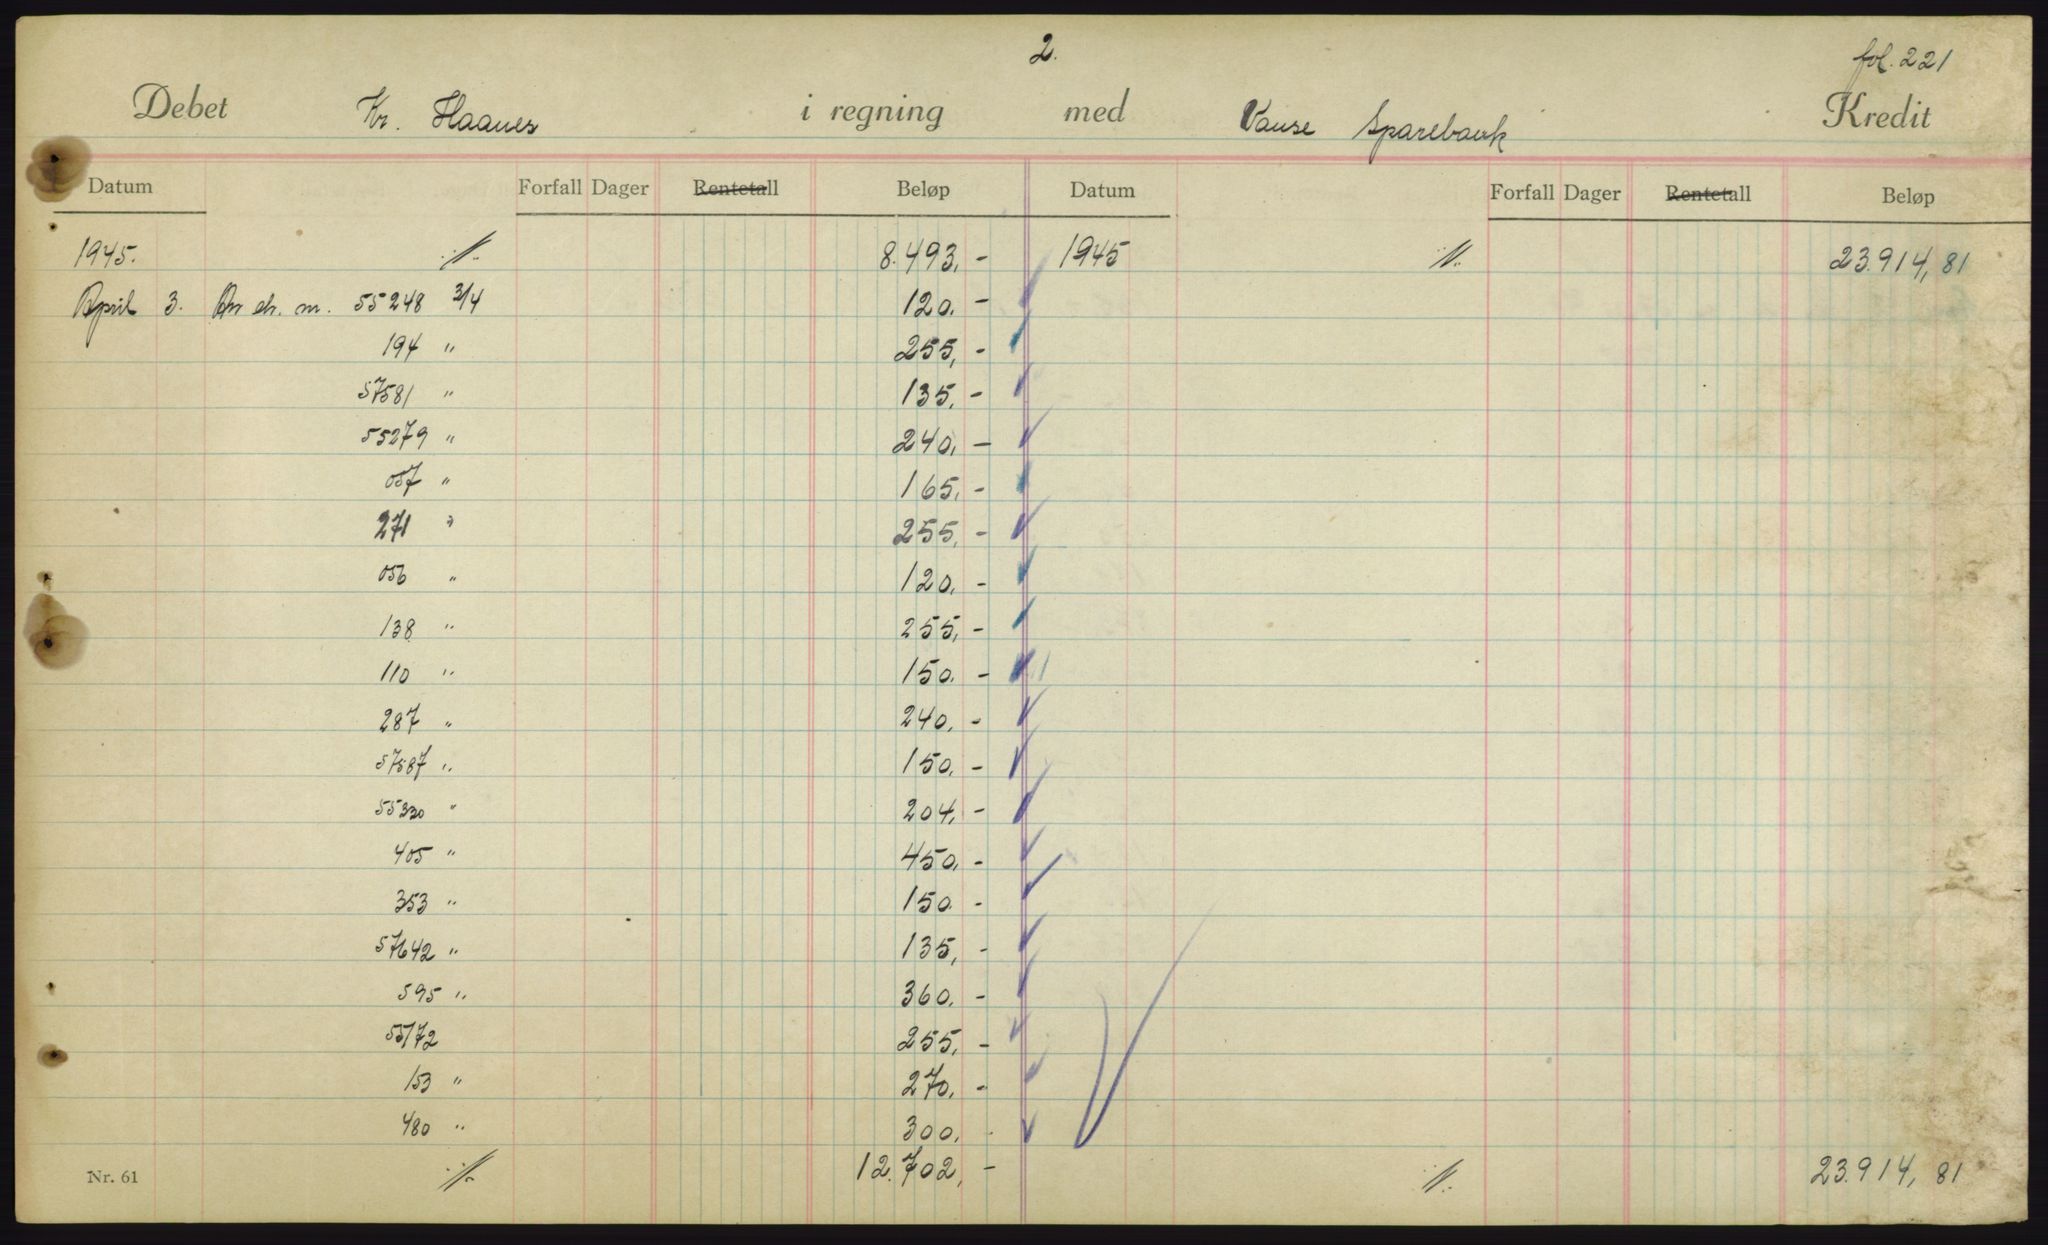 2.
fol. 221
Debet Kr. Haanes i regning med Vanse Sparebank Kredit
Datum Forfall Dager Rentetall Beløp Datum Forfall Dager Rentetall Beløp
1945. ·/· 8.493,- 1945 ·/· 23.914,81
April 3. 55248 3/4 120.-
194 " 255,-
57581 " 135,-
55279 " 240,-
057 " 165,-
271 " 255,-
056 " 120,-
138 " 255,-
110 " 150.-
287 " 240,-
57587 " 150,-
55330 " 204,-
405 " 450,-
353 " 150.-
57642 " 135,-
595 " 360,-
55172 255,-
153 " 270,-
480 " 300,-
Nr. 61 ·/· 12.702,- ·/· 23.914,81